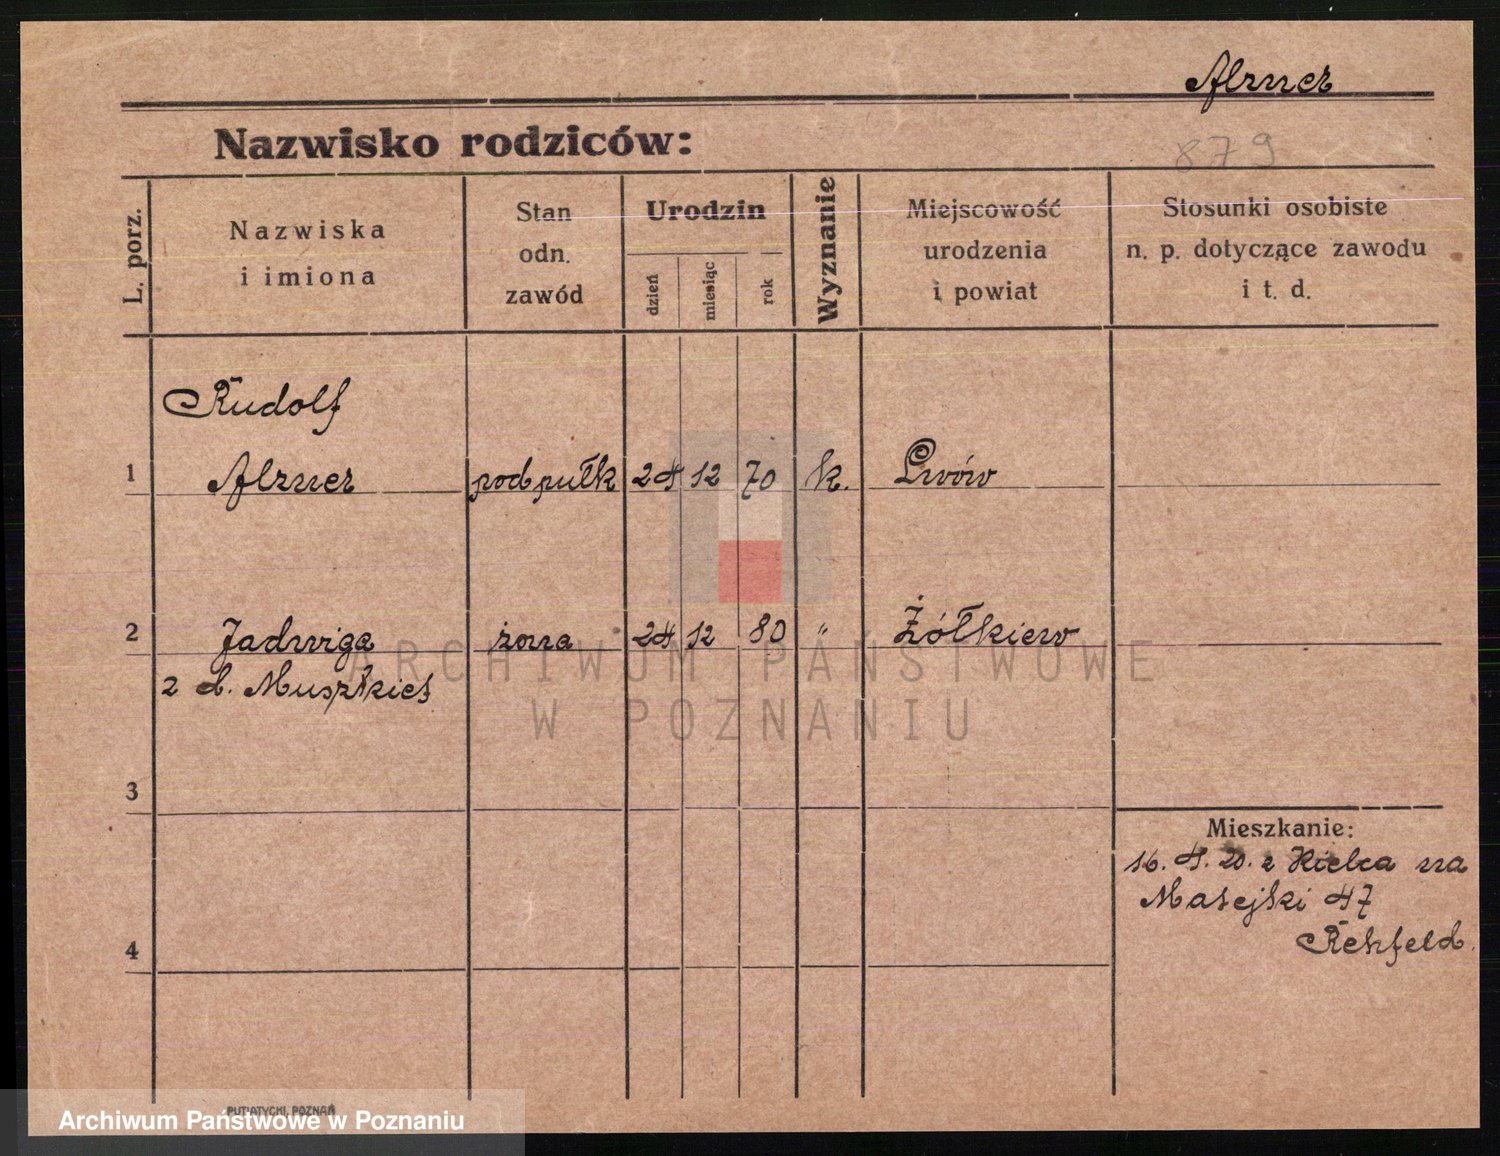 Alzner
Nazwisko rodziców:
879
L. porz.
Nazwiska
i imiona
Stan
odn.
zawód
Urodzin
dzień
miesiąc
rok
Wyznanie
Miejscowość
urodzenia
i powiat
Stosunki osobiste
n. p. dotyczące zawodu
i t. d.
Rudolf
1 Alzner podpułk 24 12 70 k. Lwów
2 Jadwiga żona 24 12 80 " Żółkiew
z d. Muszkiet
3
Mieszkanie:
16. 4. 20. z Kielca na
Matejki 47
Rehfeld.
4
ARCHIWUM PAŃSTWOWE
W POZNANIU
PUTIATYCKI, POZNAŃ
Archiwum Państwowe w Poznaniu